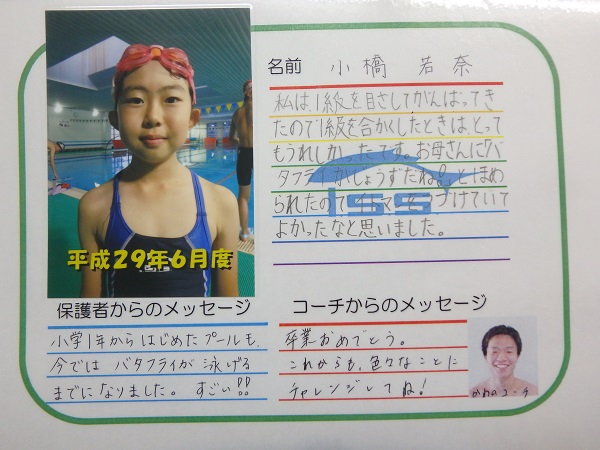 名前 小橋 若奈
私は、1級を目さしてがんばってき
たので1級を合かくしたときは、とって
もうれしかったです。お母さんに「バ
タフライがじょうずだね。」とほめ
られたのでイトマンをつづけていて
よかったなと思いました。
ISS
平成29年6月度
保護者からのメッセージ
小学1年からはじめたプールも、
今では バタフライが泳げる
までになりました。すごい!!
コーチからのメッセージ
卒業おめでとう。
これからも、色々なことに
チャレンジしてね!
かわのコーチ